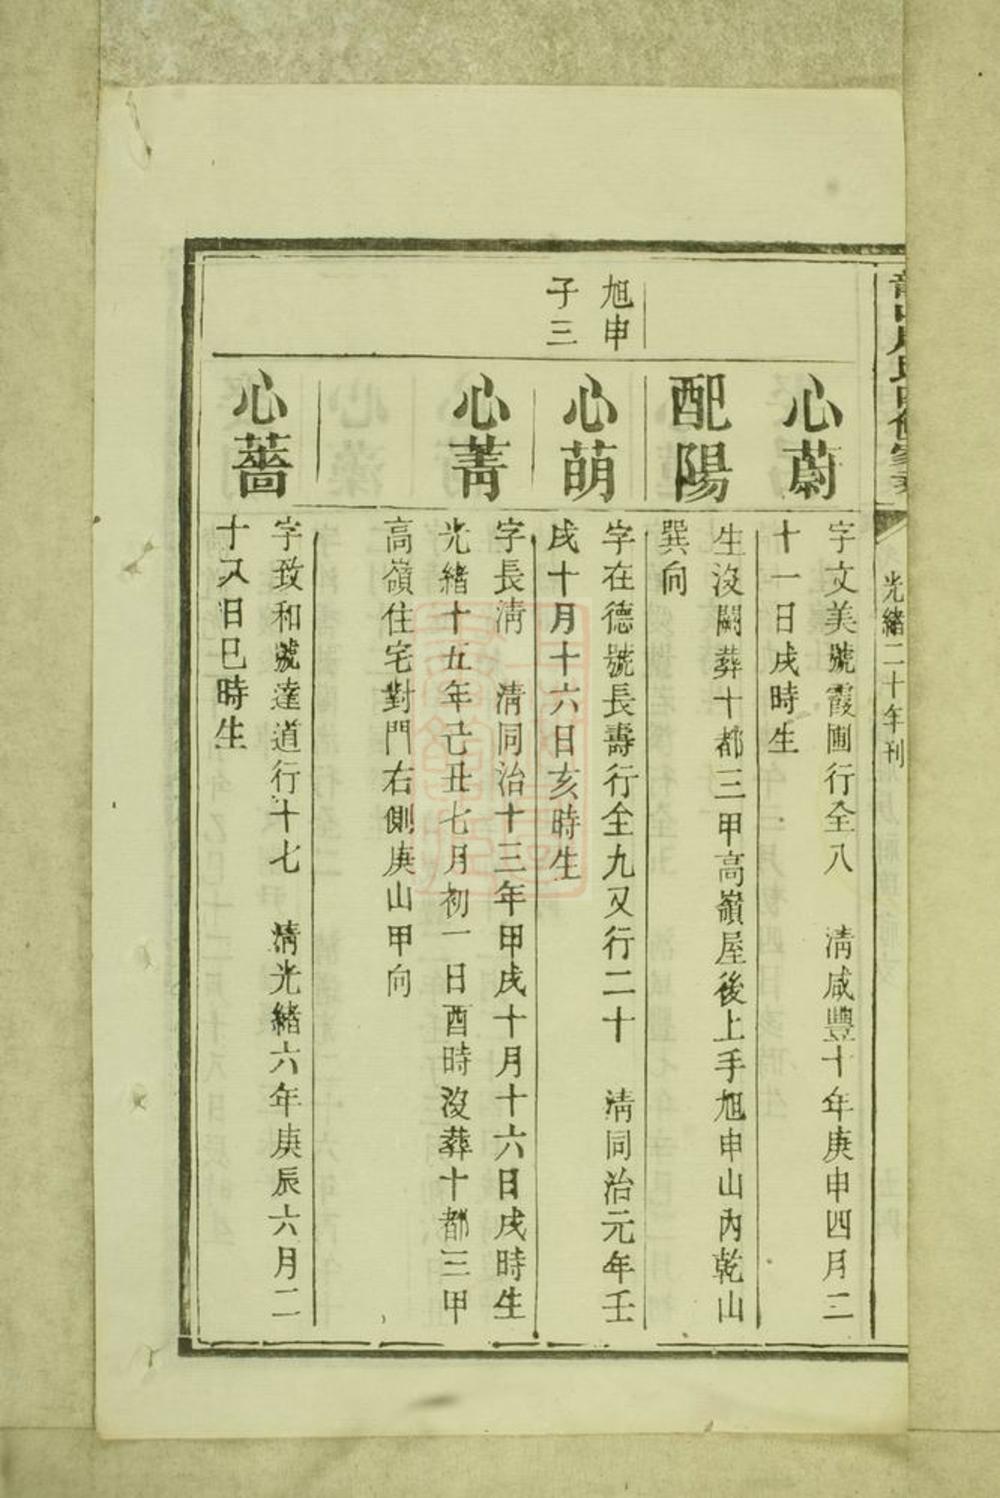 光緒二十年刊
心蔚
字文美號霞圃行全八　清咸豐十年庚申四月二
十一日戌時生
配陽
生沒闕葬十都三甲高嶺屋後上手旭申山內乾山
巽向
旭申
子三
心萌
字在德號長壽行全九又行二十　清同治元年壬
戌十月十六日亥時生
心菁
字長清　清同治十三年甲戌十月十六日戌時生
光緒十五年己丑七月初一日酉時沒葬十都三甲
高嶺住宅對門右側庚山甲向
心薔
字致和號達道行十七　清光緒六年庚辰六月二
十八日巳時生